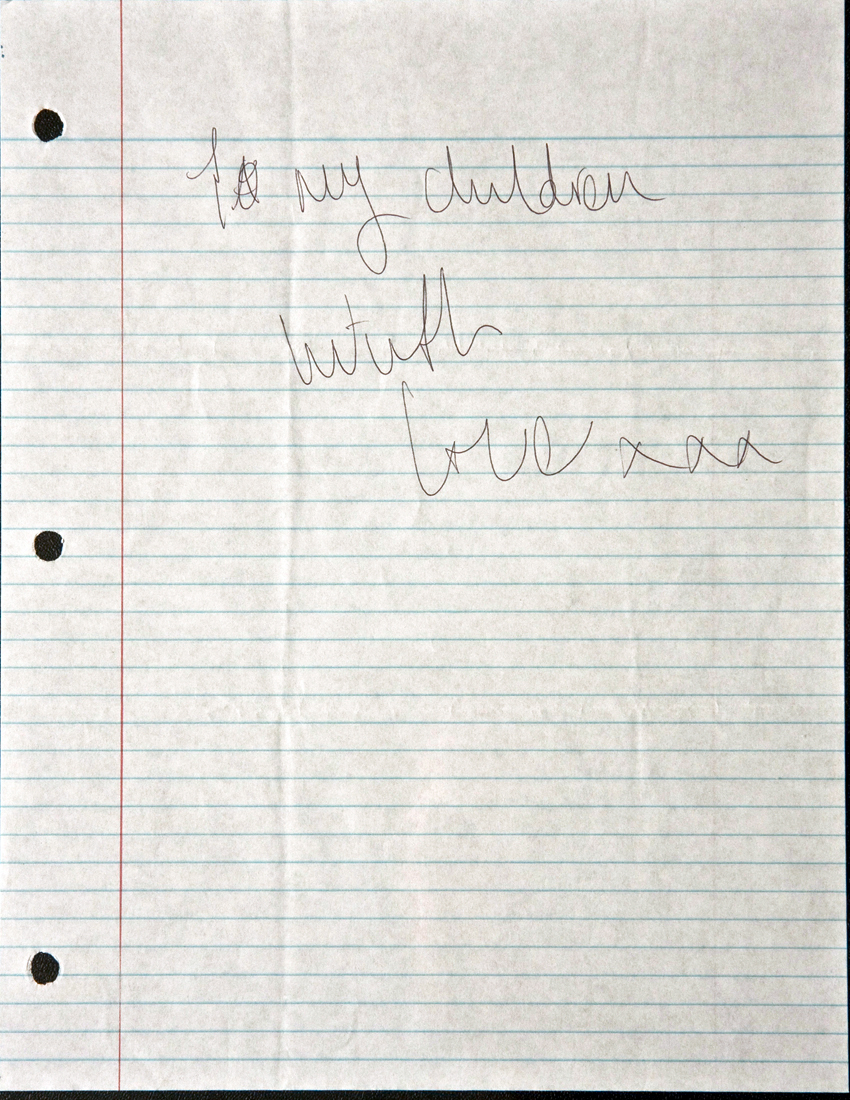 To my children
with
love xxx